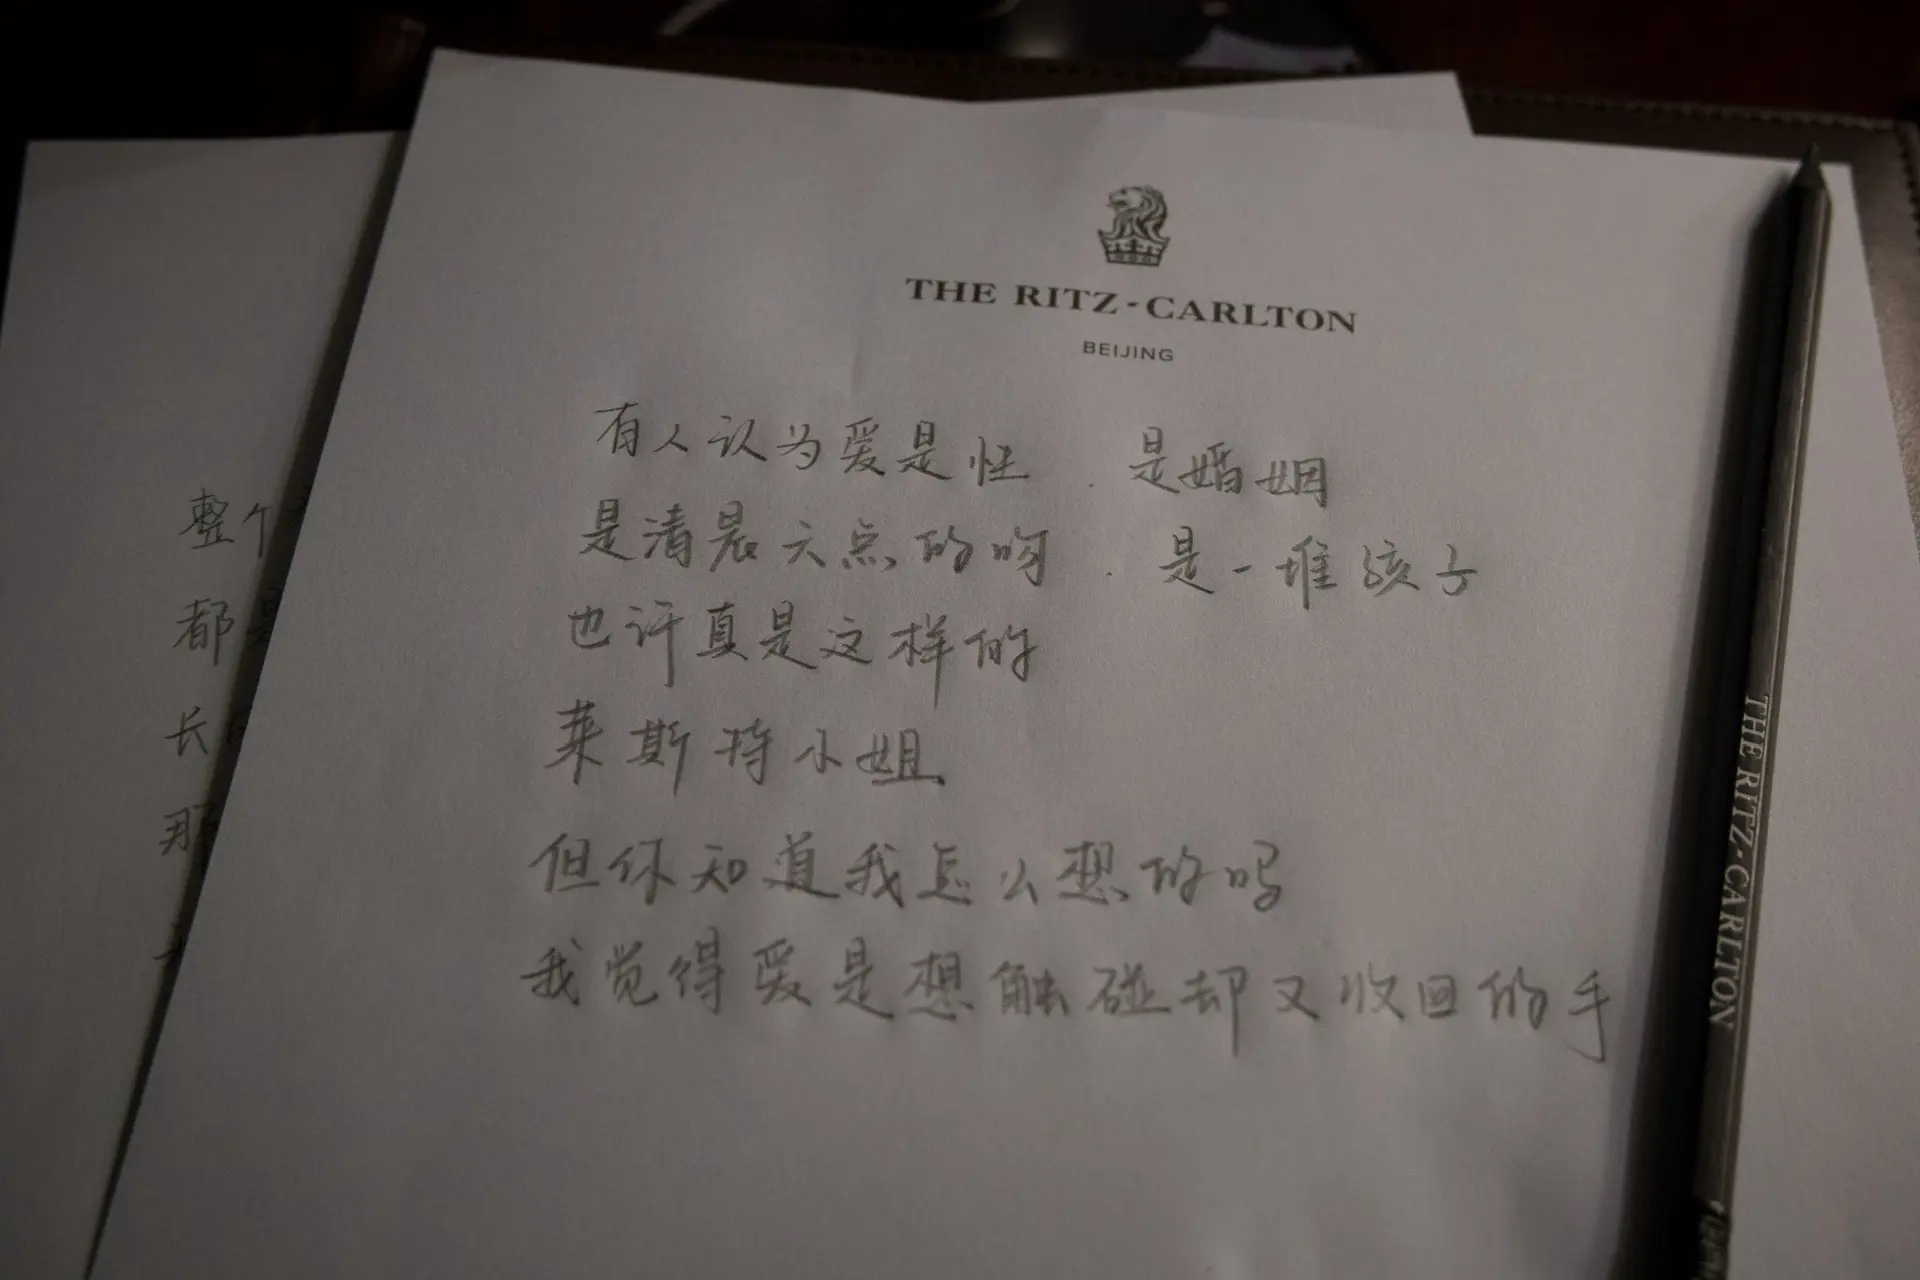 THE RITZ-CARLTON
BEIJING
有人认为爱是性.是婚姻
是清晨六点的吻.是一堆孩子
也许真是这样的
莱斯特小姐
但你知道我怎么想的吗
我觉得爱是想触碰却又收回的手
整个
都是
长
那
THE RITZ-CARLTON